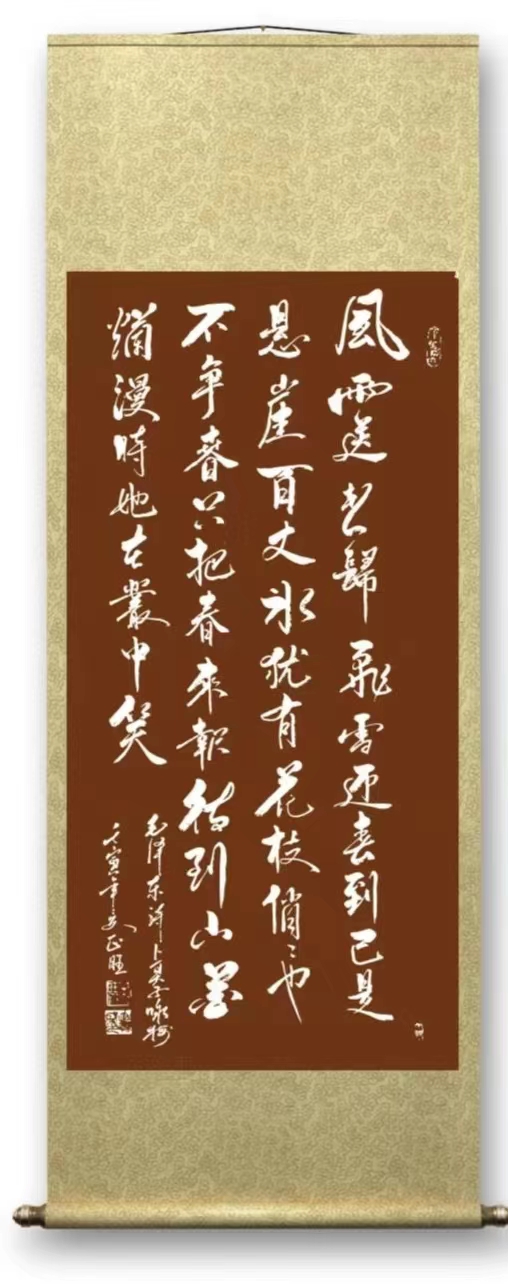 風雨送春歸飛雪迎春到已是
悬崖百丈冰犹有花枝俏々也
不争春只把春来報待到山花
爛漫時她在叢中笑
毛泽东詩卜算子咏梅
壬寅年